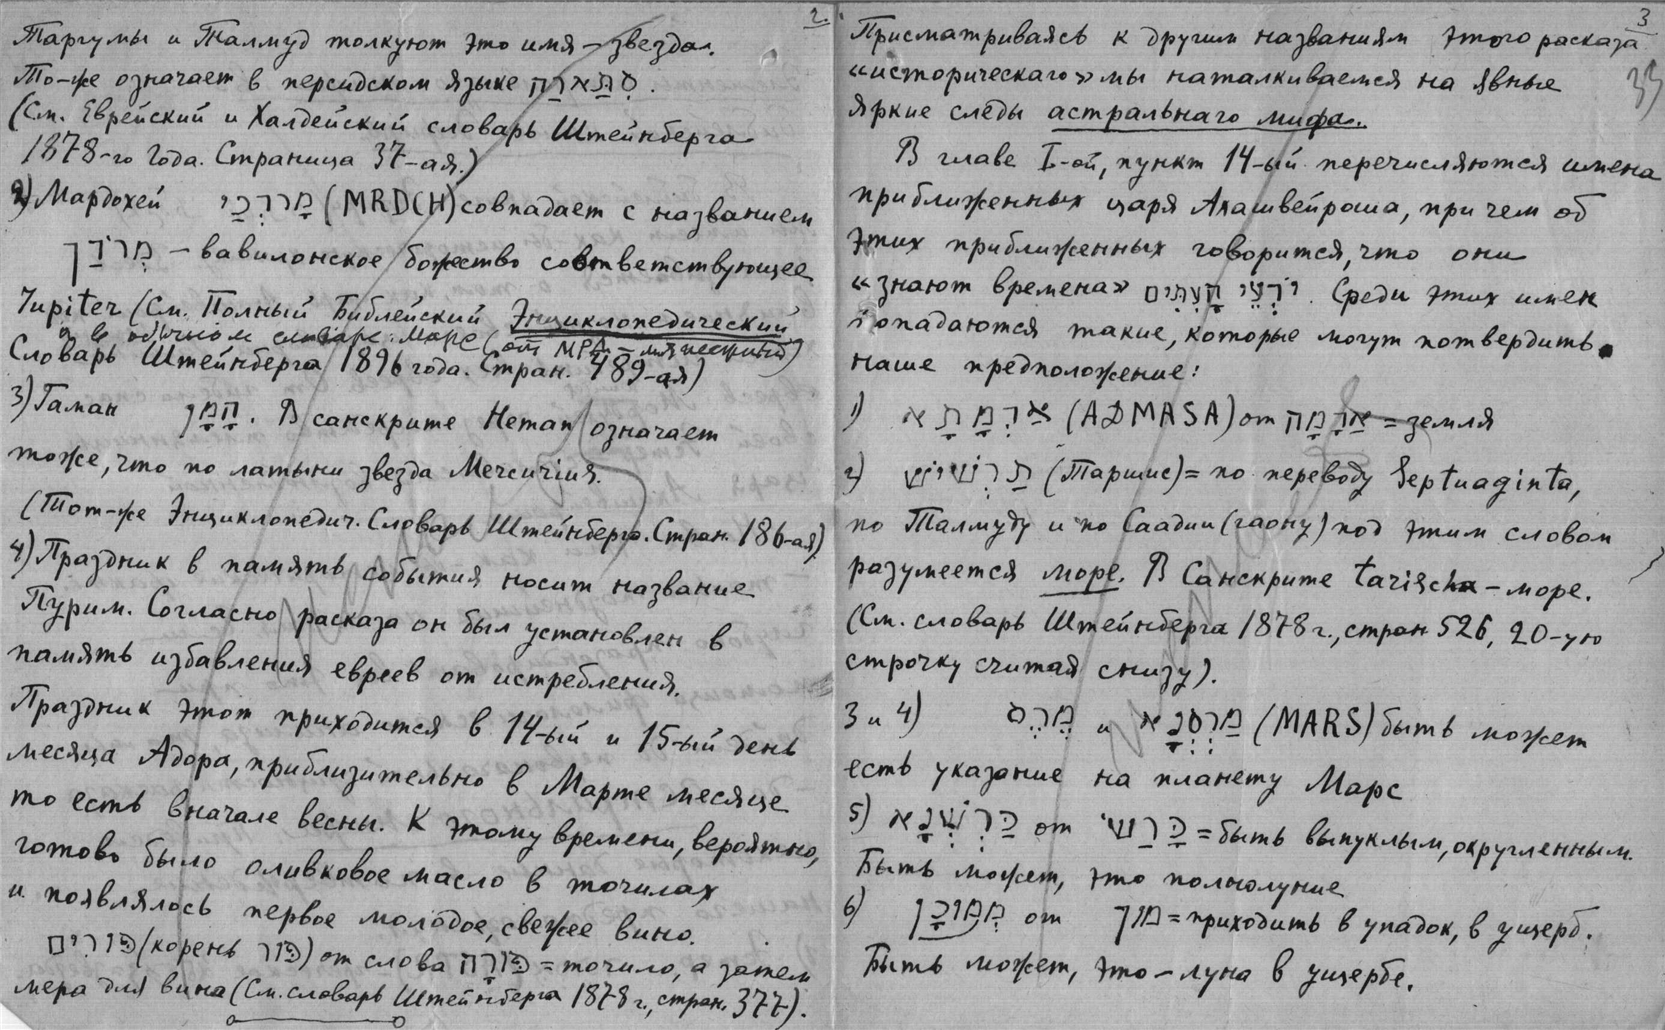 2.
Таргумы и Талмуд толкуют это имя – звезда.
То-же означает в персидском языке סְתַארַה.
(См. Еврейский и Халдейский словарь Штейнберга
1878-го года. Страница 37-ая.)
2) Мардохей מָרדְכַי (MRDCH) совпадает с названием
מְרוֹדַך – вавилонское божество соответствующее
Iupiter (См. Полный Библейский Энциклопедический
и в обычном словаре: Марс (от МРД –
Словарь Штейнберга 1896 года. Стран. 489-ая)
3) Гаман הָמָן. В санскрите Heman означает
тоже, что по латыни звезда Mercurius.
(Тот-же Энциклопедич. Словарь Штейнберга. Стран. 186-ая)
4) Праздник в память события носит название
Пурим. Согласно расказа он был установлен в
память избавления евреев от истребления.
Праздник этот приходится в 14-ый и 15-ый день
месяца Адора, приблизительно в Марте месяце
то есть вначале весны. К этому времени, вероятно,
готово было оливковое масло в точилах
и появлялось первое молодое, свежее вино.
פּוּרִים (корень פּוּר) от слова פּוּרָה = точило, а затем
мера для вина (См. словарь Штейнберга 1878 г., стран. 377).
3
33
Присматриваясь к другим названиям этого расказа
«историческаго» мы наталкиваемся на явные
яркие следы астральнаго мифа.
В главе I-ой, пункт 14-ый перечисляются имена
приближенных царя Ахашвейроша, при чем об
этих приближенных говорится, что они
«знают времена» יוֹדְעֵי הָעִתִּים. Среди этих имен
попадаются такие, которые могут потвердить
наше предположение:
1) אַדְמָתָא (ADMASA) от אַדָמָה = земля
2) תַרְשִׁישׁ (Таршис) = по переводу Septuaginta,
по Талмуду и по Саадии (гаону) под этим словом
разумеется море. В Санскрите tarischa – море.
(См. словарь Штейнберга 1878 г., стран 526, 20-ую
строчку считая снизу).
3 и 4) מֶרֶס и מַרְסְנָא (MARS) быть может
есть указание на планету Марс
5) כַּרְשְׁנָא от כָּרַשׁ = быть выпуклым, округленным.
Быть может, это полнолуние
6) מְמוּכָן от מוּך = приходить в упадок, в ущерб.
Быть может, это – луна в ущербе.